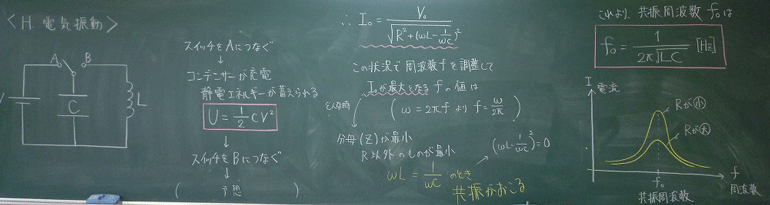 〈H. 電気振動〉
A B
V C L
スイッチをAにつなぐ
↓
コンデンサーが充電
静電エネルギーが蓄えられる
U = 1/2 CV²
↓
スイッチをBにつなぐ
↓
( 予想 )
∴ I₀ = V₀ / √(R² + (ωL - 1/ωC)²)
この状況で周波数fを調整して
I₀が最大となるfの値は
(ω = 2πf より f = ω/2π)
どんな時
分母(Z)が最小
R以外のものが最小
(ωL - 1/ωC)² = 0
ωL = 1/ωC のとき
共振がおこる
これより、共振周波数 f₀は
f₀ = 1 / 2π√LC [Hz]
I 電流
Rが小
Rが大
f₀
f
周波数
共振周波数